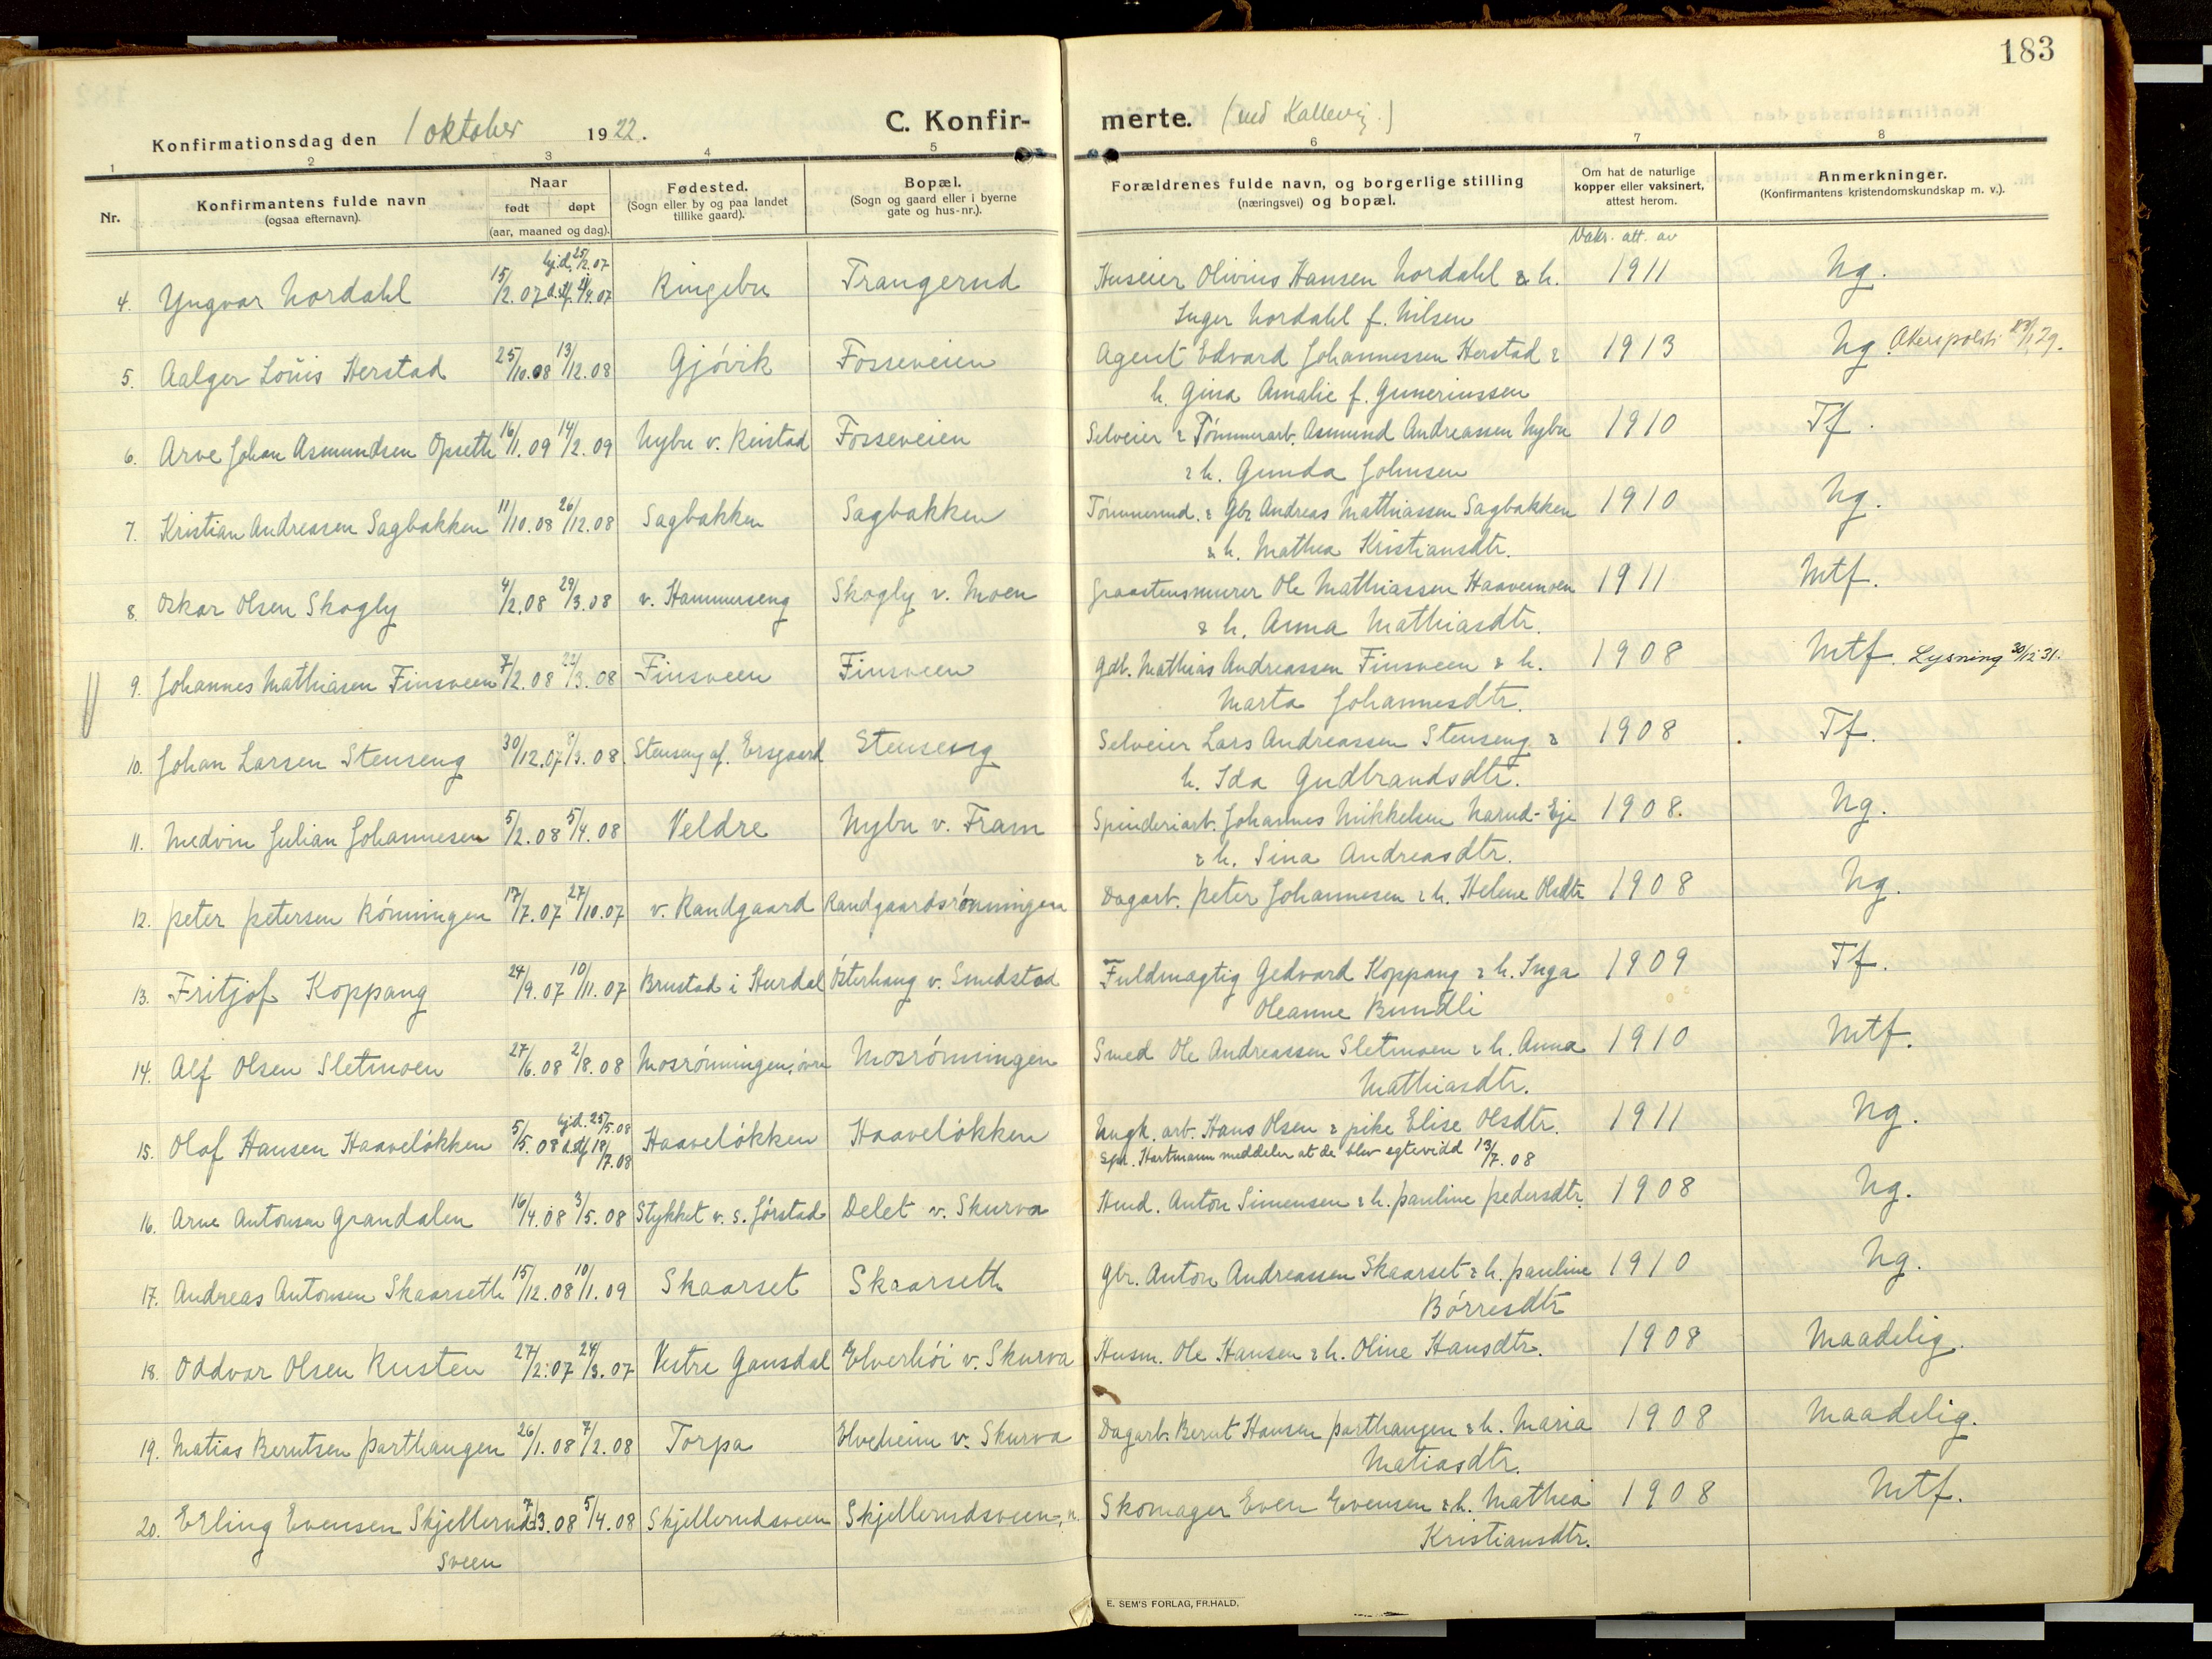 183
Konfirmationsdag den 1 oktober 1922.
C. Konfirmerte. (ved Kallevig.)
1 2 3 4 5 6 7 8
Nr.
Konfirmantens fulde navn
(ogsaa efternavn).
Naar
født døpt
(aar, maaned og dag).
Fødested.
(Sogn eller by og paa landet
tillike gaard).
Bopæl.
(Sogn og gaard eller i byerne
gate og hus-nr.).
Forældrenes fulde navn, og borgerlige stilling
(næringsvei) og bopæl.
Om hat de naturlige
kopper eller vaksinert,
attest herom.
Anmerkninger.
(Konfirmantens kristendomskundskap m. v.).
Vaks. att. av
4. Yngvar Nordahl 15/2.07 hj.d. 25/2.07 d.stf. 4/4.07 Ringebu Trangerud Huseier Olivius Hansen Nordahl & h. 1911 Ng.
Inger Nordahl f. Nilsen
5. Aalger Louis Herstad 25/10.08 13/12.08 Gjövik Fosseveien Agent Edvard Johannessen Herstad & 1913 Ng. Akerspoliti 23/1 29.
h. Gina Amalie f. Gunerinssen
6. Arve Johan Asmundsen Opseth 16/1.09 14/2.09 Nybu v. Reistad Fosseveien Selveier & Tömmerarb. Asmund Andreassen Nybu 1910 Tf.
& h. Gunda Johnsen
7. Kristian Andreasen Sagbakken 11/10.08 26/12.08 Sagbakken Sagbakken Tömmermd. & Gbr Andreas Mathiassen Sagbakken 1910 Ng.
& h. Mathea Kristiansdtr.
8. Oskar Olsen Skogly 4/2.08 29/3.08 v. Hammerseng Skogly v. Moen Graastensmurer Ole Mathiassen Haavemoen 1911 Mtf.
& h. Anna Mathiasdtr.
9. Johannes Mathiasen Finsveen 7/2.08 22/3.08 Finsveen Finsveen Gdb. Mathias Andreassen Finsveen & h. 1908 Mtf. Lysning 30/12 31.
Marta Johannesdtr.
10. Johan Larsen Stenseng 30/12.07 8/3.08 Stenseng af. Ersgaard Stenseng Selveier Lars Andreassen Stenseng & 1908 Tf.
h. Ida Gudbrandsdtr.
11. Medvin Julian Johannesen 5/2.08 5/4.08 Veldre Nybu v. Fram Spinderiarb. Johannes Mikkelsen Narud-Eje 1908. Ng.
& h. Sina Andreasdtr.
12. Peter Petersen Rönningen 17/7.07 27/10.07 v. Randgaard Randgaardsrönningen Dagarb. Peter Johannesen & h. Helene Olsdtr 1908 Ng.
13. Fritjof Koppang 24/9.07 10/11.07 Brustad i Hurdal Österhaug v. Smedstad Fuldmagtig Gedvard Koppang & h. Inga 1909 Tf.
Oleanne Bundli
14. Alf Olsen Sletmoen 27/6.08 2/8.08 Mosrönningen, övre Mosrönningen Smed Ole Andreassen Sletmoen & h. Anna 1910 Mtf.
Mathiasdtr.
15. Olaf Hansen Haavelökken 5/5.08 hj.d. 25/5.08 d.stf. 18/7.08 Haavelökken Haavelökken Ungk. arb. Hans Olsen & pike Elise Olsdtr. 1911 Ng.
Spr. Hartmann meddeler at de blev egtevidd 13/7.08
16. Arne Antonsen Grandalen 16/4.08 3/5.08 Stykket v. S. Jörstad Delet v. Skurva Hmd. Anton Simensen & h. Pauline Pedersdtr. 1908 Ng.
17. Andreas Antonsen Skaarseth 15/12.08 10/1.09 Skaarset Skaarseth Gbr. Anton Andreassen Skaarset & h. Pauline 1910 Ng.
Börresdtr
18. Oddvar Olsen Rusten 27/2.07 24/3.07 Vestre Gausdal Elverhöi v. Skurva Husm. Ole Hansen & h. Oline Hansdtr. 1908 Maadelig.
19. Matias Berntsen Parthaugen 26/1.08 7/2.08 Torpa Elveheim v. Skurva Dagarb. Bernt Hansen Parthaugen & h. Maria 1908 Maadelig.
Matiasdtr.
20. Erling Evensen Skjellerud- 7/3.08 5/4.08 Skjellerudsveen Skjellerudsveen, n. Skomager Even Evensen & h. Mathea 1908 Mtf.
sveen Kristiansdtr.
E. SEM'S FORLAG, FR.HALD.